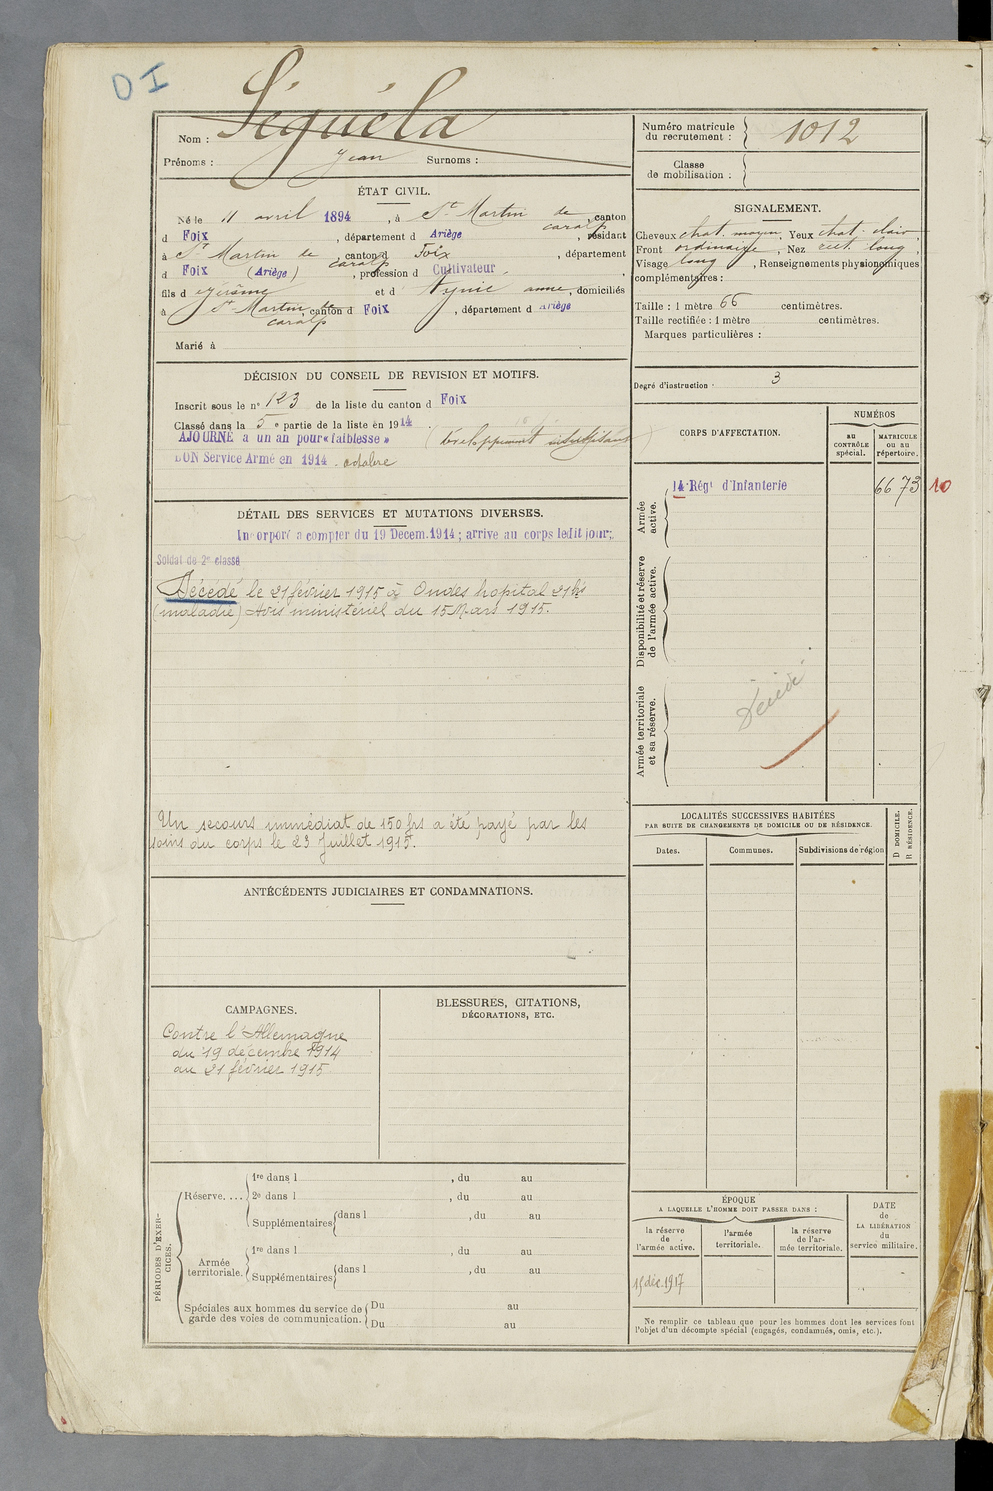 D I
Nom : Séguéla
Prénoms : Jean Surnoms :
Numéro matricule du recrutement : 1012
Classe de mobilisation :
ÉTAT CIVIL.
Né le 11 avril 1894, à St Martin de caralp, canton
d Foix, département d Ariège, résidant
à St Martin de caralp, canton d Foix, département
d Foix (Ariège), profession d Cultivateur,
fils d Jérôme et d anne, domiciliés
à St Martin de caralp, canton d Foix, département d Ariège
Marié à
SIGNALEMENT.
Cheveux chat. moyen, Yeux chat. clair,
Front ordinaire, Nez rect. long,
Visage long, Renseignements physionomiques
complémentaires :
Taille : 1 mètre 66 centimètres.
Taille rectifiée : 1 mètre centimètres.
Marques particulières :
Degré d'instruction : 3
DÉCISION DU CONSEIL DE REVISION ET MOTIFS.
Inscrit sous le n° 123 de la liste du canton d Foix
Classé dans la 5 e partie de la liste en 1914.
AJOURNÉ à un an pour « faiblesse » (développement insuffisant)
BON Service Armé en 1914. octobre
CORPS D'AFFECTATION.
NUMÉROS
au CONTRÔLE spécial.
MATRICULE ou au répertoire.
Armée active.
14 Régt d'Infanterie 6673 10
Disponibilité et réserve de l'armée active.
Armée territoriale et sa réserve.
Décédé
DÉTAIL DES SERVICES ET MUTATIONS DIVERSES.
Incorporé à compter du 19 Décem. 1914 ; arrive au corps ledit jour;
Soldat de 2e classe
Décédé le 21 février 1915 à Ondes hôpital 21 bis
(maladie) Avis ministériel du 15 Mars 1915.
Un secours immédiat de 150 frs a été payé par les
soins du corps le 23 Juillet 1915.
LOCALITÉS SUCCESSIVES HABITÉES
PAR SUITE DE CHANGEMENTS DE DOMICILE OU DE RÉSIDENCE.
Dates. Communes. Subdivisions de région
D DOMICILE.
R RÉSIDENCE.
ANTÉCÉDENTS JUDICIAIRES ET CONDAMNATIONS.
CAMPAGNES.
Contre l'Allemagne
du 19 décembre 1914
au 21 février 1915
BLESSURES, CITATIONS,
DÉCORATIONS, ETC.
PÉRIODES D'EXERCICES.
Réserve. ...
1re dans l , du au
2e dans l , du au
Supplémentaires dans l , du au
Armée territoriale.
1re dans l , du au
Supplémentaires dans l , du au
Spéciales aux hommes du service de garde des voies de communication.
Du au
Du au
ÉPOQUE
A LAQUELLE L'HOMME DOIT PASSER DANS :
la réserve de l'armée active.
l'armée territoriale.
la réserve de l'armée territoriale.
DATE de LA LIBÉRATION du service militaire.
15 déc. 1917
Ne remplir ce tableau que pour les hommes dont les services font
l'objet d'un décompte spécial (engagés, condamnés, omis, etc.).